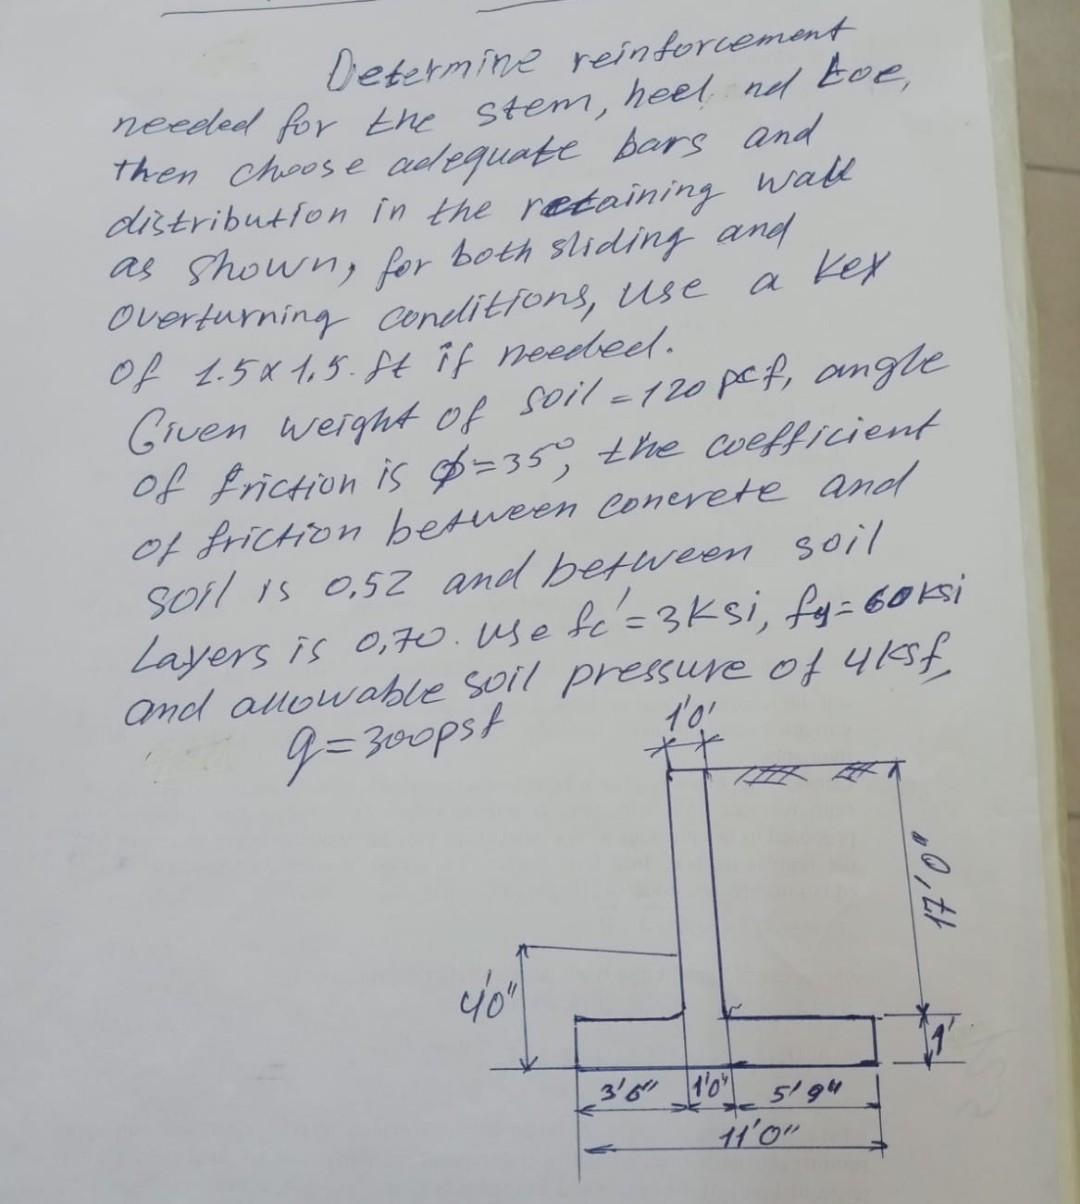 Determine reinforcement
needed for the stem, heel, nd toe,
then choose adequate bars and
distribution in the retaining wall
as shown, for both sliding and
overturning conditions, use a key
of 1.5x1.5.ft if needed.
Given weight of soil = 120 pcf, angle
of friction is ϕ=35°, the coefficient
of friction between concrete and
soil is 0,52 and between soil
Layers is 0,70. use fc' = 3ksi, fy = 60ksi
and allowable soil pressure of 4ksf,
q=300psf
1'0'
17'0"
4'0"
1'
3'6" 1'0" 5'9"
11'0"